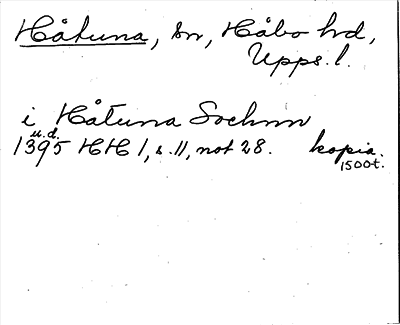 Håtuna, sn, Håbo hd,
Upps. l.
i Håtuna Sochnn
u.d.
1395 HH 1, s. 11, not 28. kopia.
1500t.